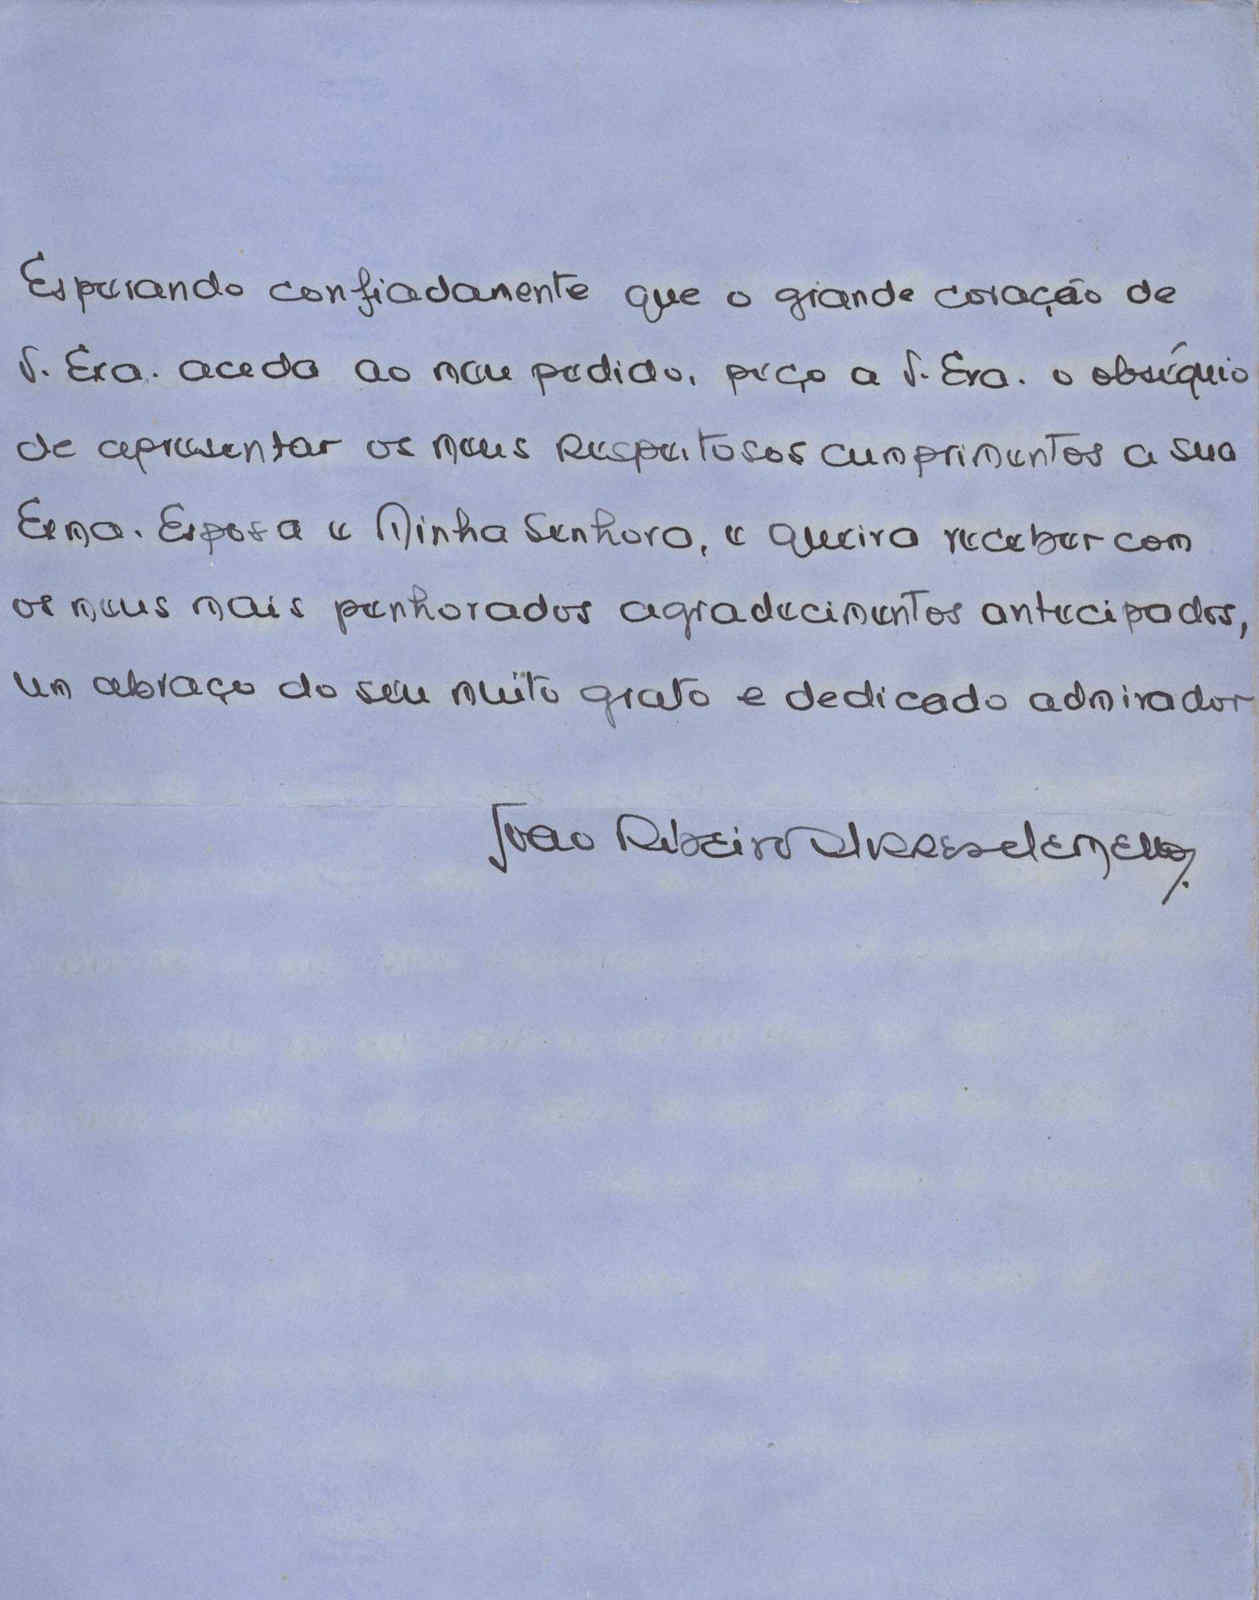 Esperando confiadamente que o grande coração de
V. Exa. aceda ao meu pedido, peço a V. Exa. o obséquio
de apresentar os meus respeitosos cumprimentos a sua
Exma. Esposa e Minha Senhora, e queira receber com
os meus mais penhorados agradecimentos antecipados,
um abraço do seu muito grato e dedicado admirador
João Ribeiro Alves de Mello